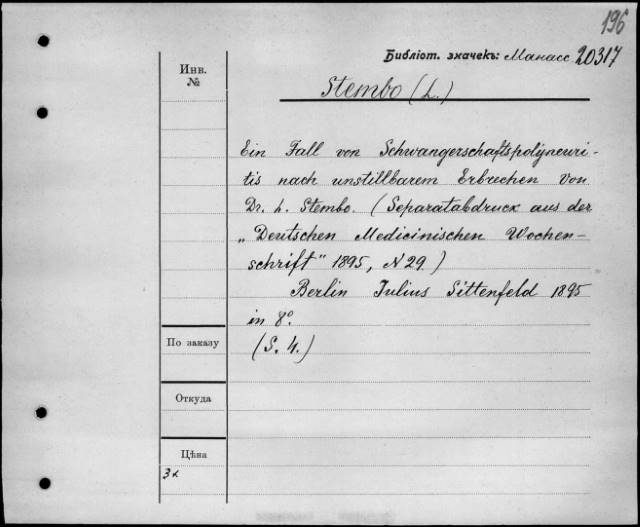 196
Библіот. значекъ: Манасс 20317
Инв.
№
Stembo (L.)
Ein Fall von Schwangerschaftspolyneuri-
tis nach unstillbarem Erbrechen von
Dr. L. Stembo. (Separatabdruck aus der
„Deutschen Medicinischen Wochen-
schrift" 1895, N 29.)
Berlin Julius Sittenfeld 1895
in 8°.
(S. 4.)
По заказу
Откуда
Цѣна